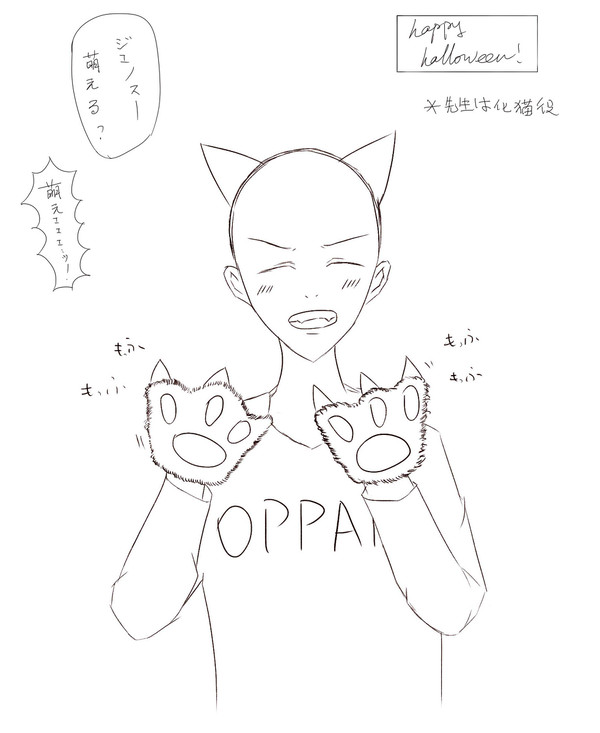 happy
halloween!
*先生は化猫役
ジェノスー
萌える?
萌エエエエーッ!
もふ
もっふ
もっふ
もっふ
OPPA